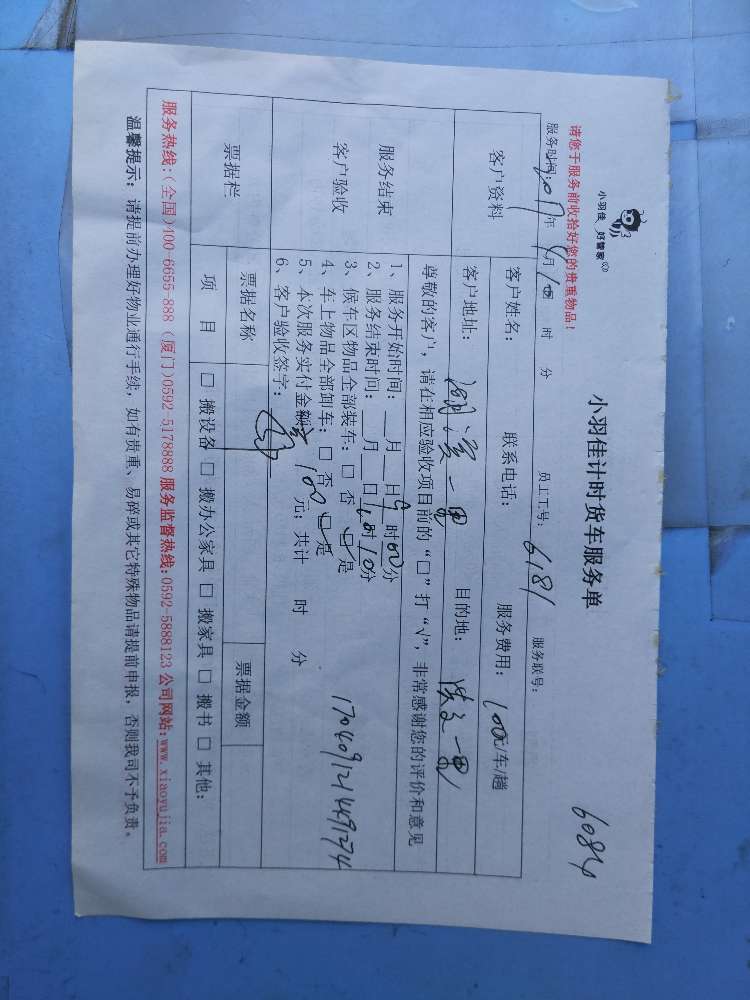 6084
小羽佳 好管家
小羽佳计时货车服务单
请您于服务前收拾好您的贵重物品！
服务时间：2017年4月10日 时 分 员工工号：6181 服务联号：
客户资料
客户姓名： 联系电话： 服务费用：100元/车/趟
客户地址：湖滨一里 目的地：
服务结束
客户验收
尊敬的客户，请在相应验收项目前的“□”打“√”，非常感谢您的评价和意见
1、服务开始时间：__月__日9时00分
2、服务结束时间：__月__日 时10分
3、候车区物品全部装车：□ 否 ☑是
4、车上物品全部卸车：□ 否 ☑是
5、本次服务实付金额 100 元；共计 时 分
6、客户验收签字：
1704091214491274
票据栏
票据名称
票据金额
项 目 □ 搬设备 □ 搬办公家具 □ 搬家具 □ 搬书 □ 其他：
服务热线：（全国）400-6655-888（厦门）0592-5178888 服务监督热线：0592-5888123 公司网站：www.xiaoyujia.com
温馨提示：请提前办理好物业通行手续，如有贵重、易碎或其它特殊物品请提前申报，否则我司不予负责。